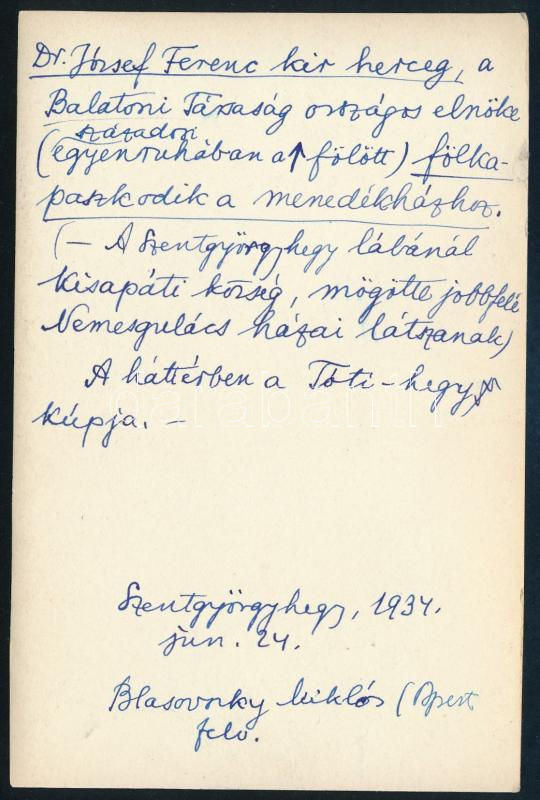 Dr. József Ferenc kir herceg, a
Balatoni Társaság országos elnöke
századosi
(egyenruhában a ↑ fölött) fölka-
paszkodik a menedékházhoz.
(— A Szentgyörgyhegy lábánál
Kisapáti község, mögötte jobbfelé
Nemesgulács házai látszanak)
A háttérben a Tóti-hegy
kúpja. —
Szentgyörgyhegy, 1934.
jun. 24.
Blasovszky Miklós (Bpest
felv.
darabanth